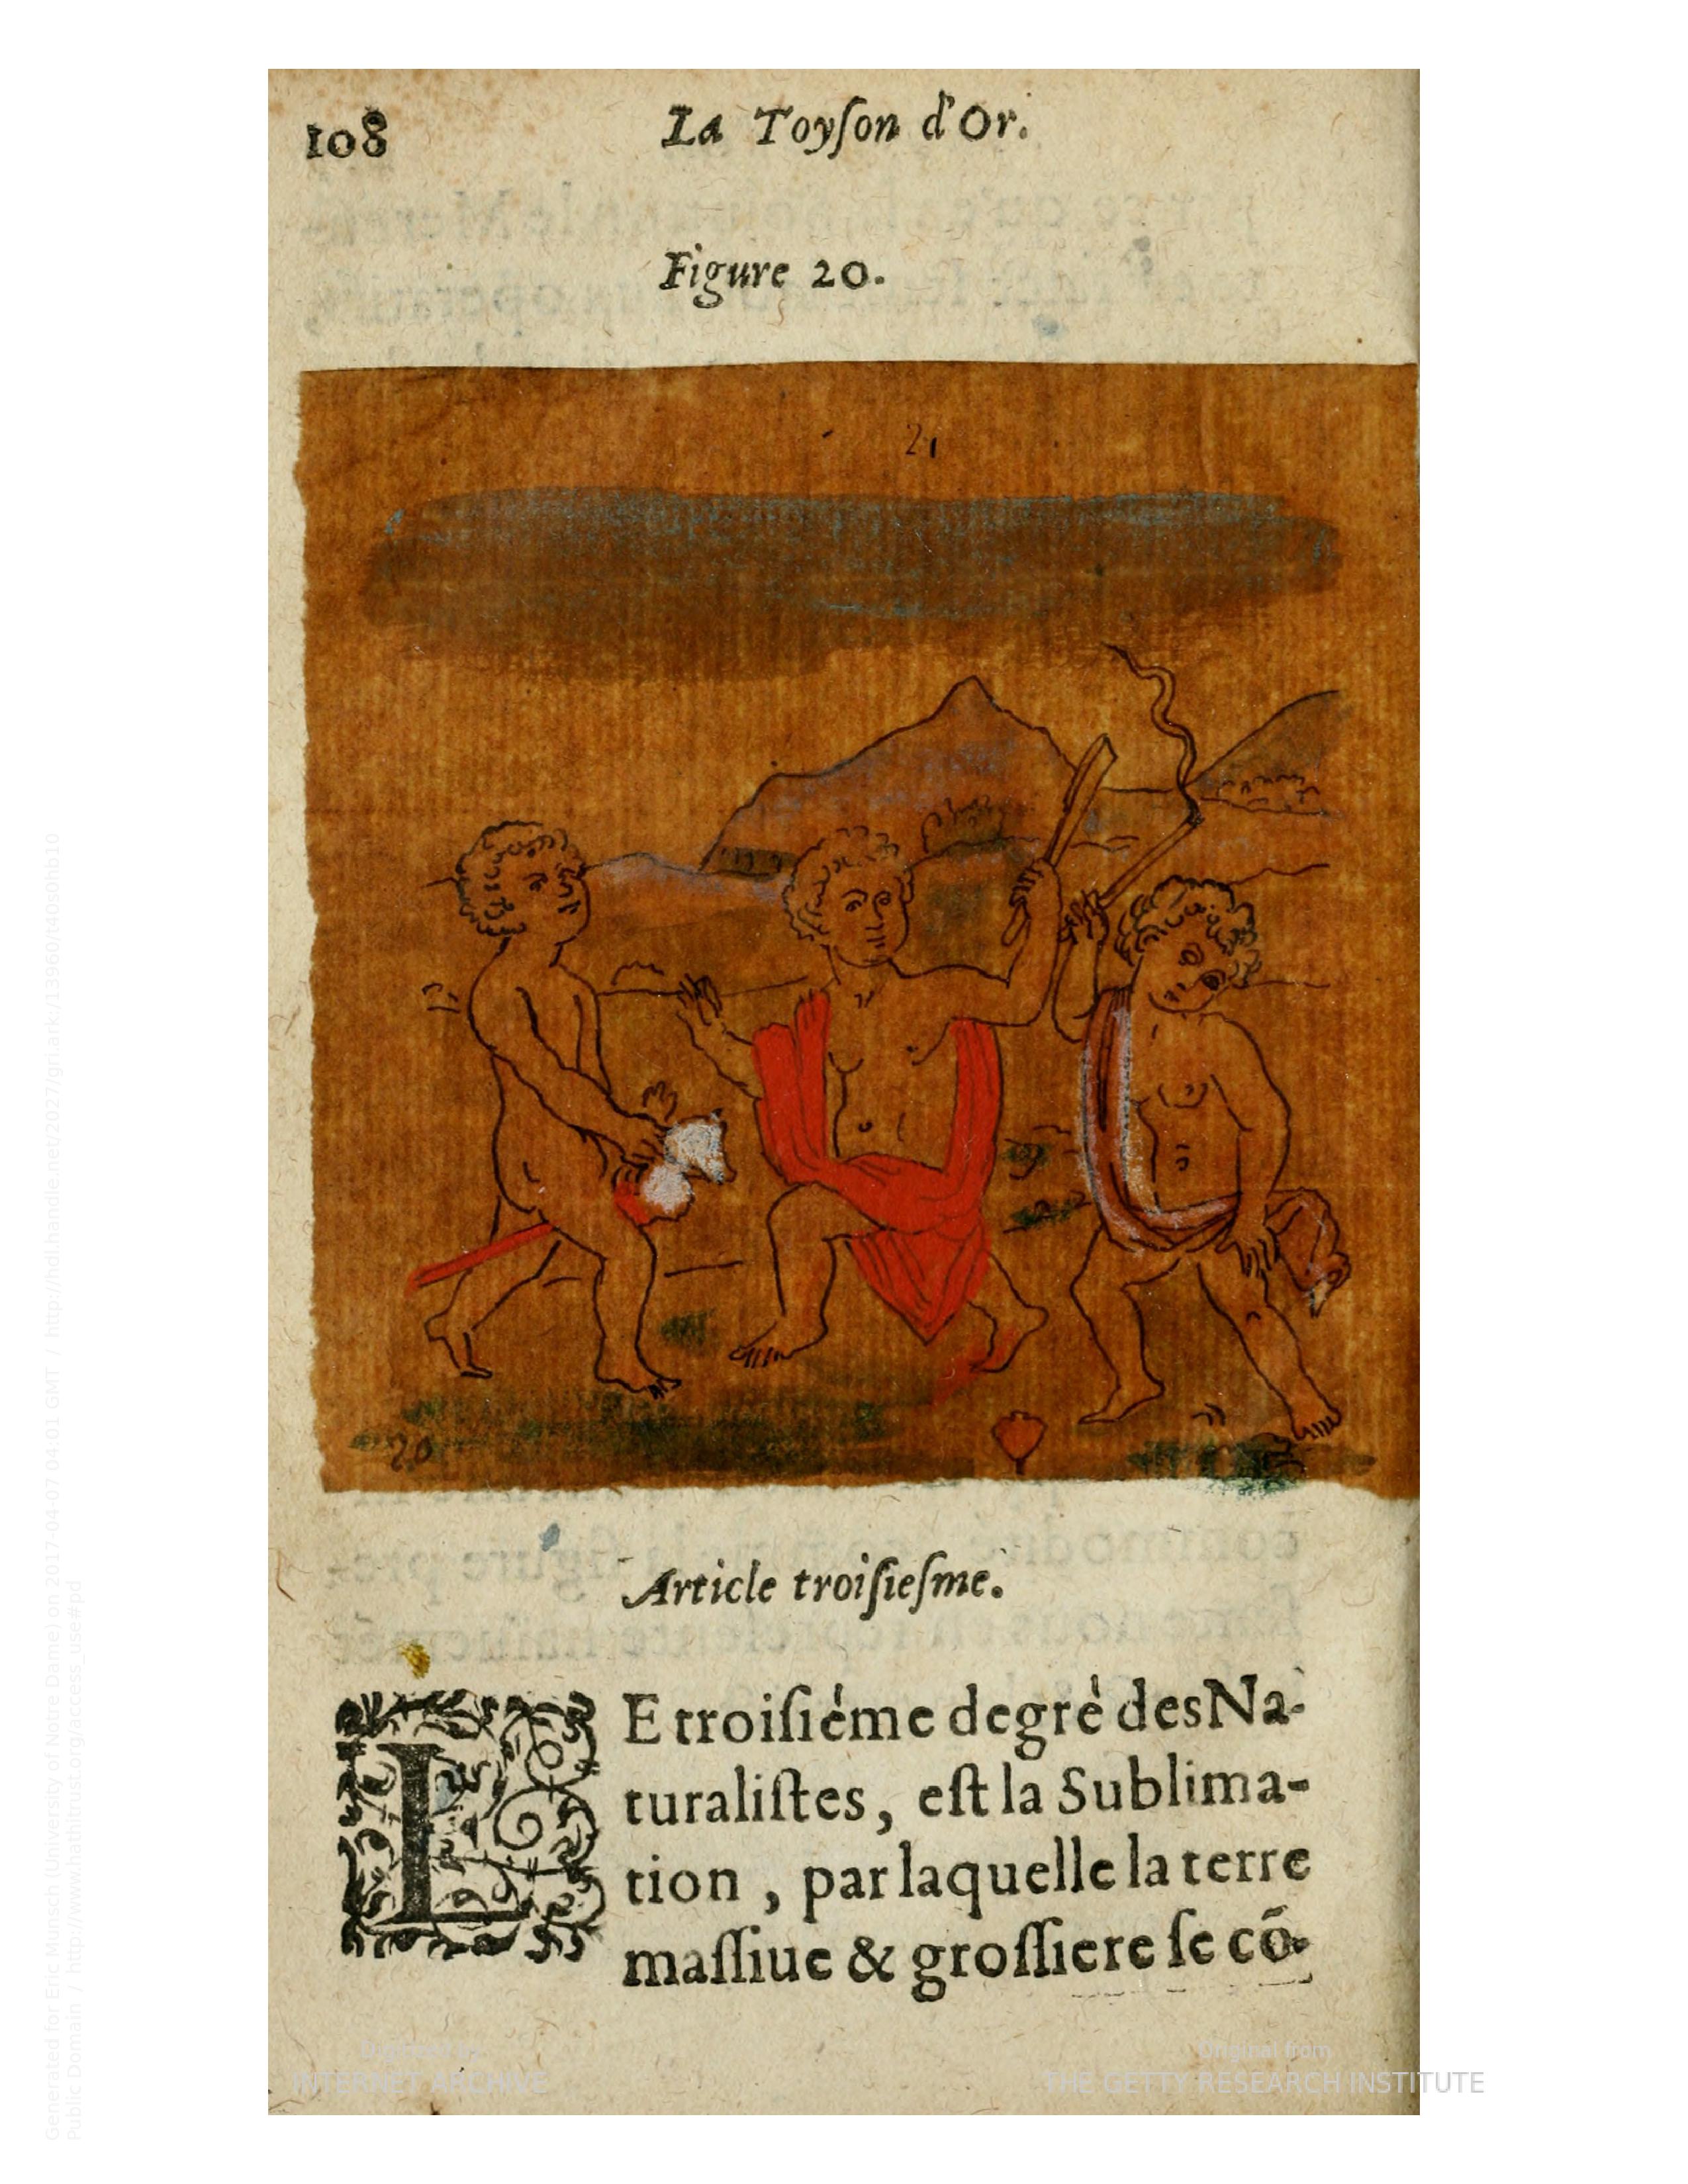 108 La Toyſon d'Or.
Figure 20.
21
20
Article troiſieſme.
LE troiſiéme degré des Na-
turaliſtes, eſt la Sublima-
tion, par laquelle la terre
maſſiue & groſſiere ſe cõ-
Generated for Eric Munsch (University of Notre Dame) on 2017-04-07 04:01 GMT / http://hdl.handle.net/2027/gri.ark:/13960/t40s0hb10
Public Domain / http://www.hathitrust.org/access_use#pd
Digitized by
INTERNET ARCHIVE
Original from
THE GETTY RESEARCH INSTITUTE